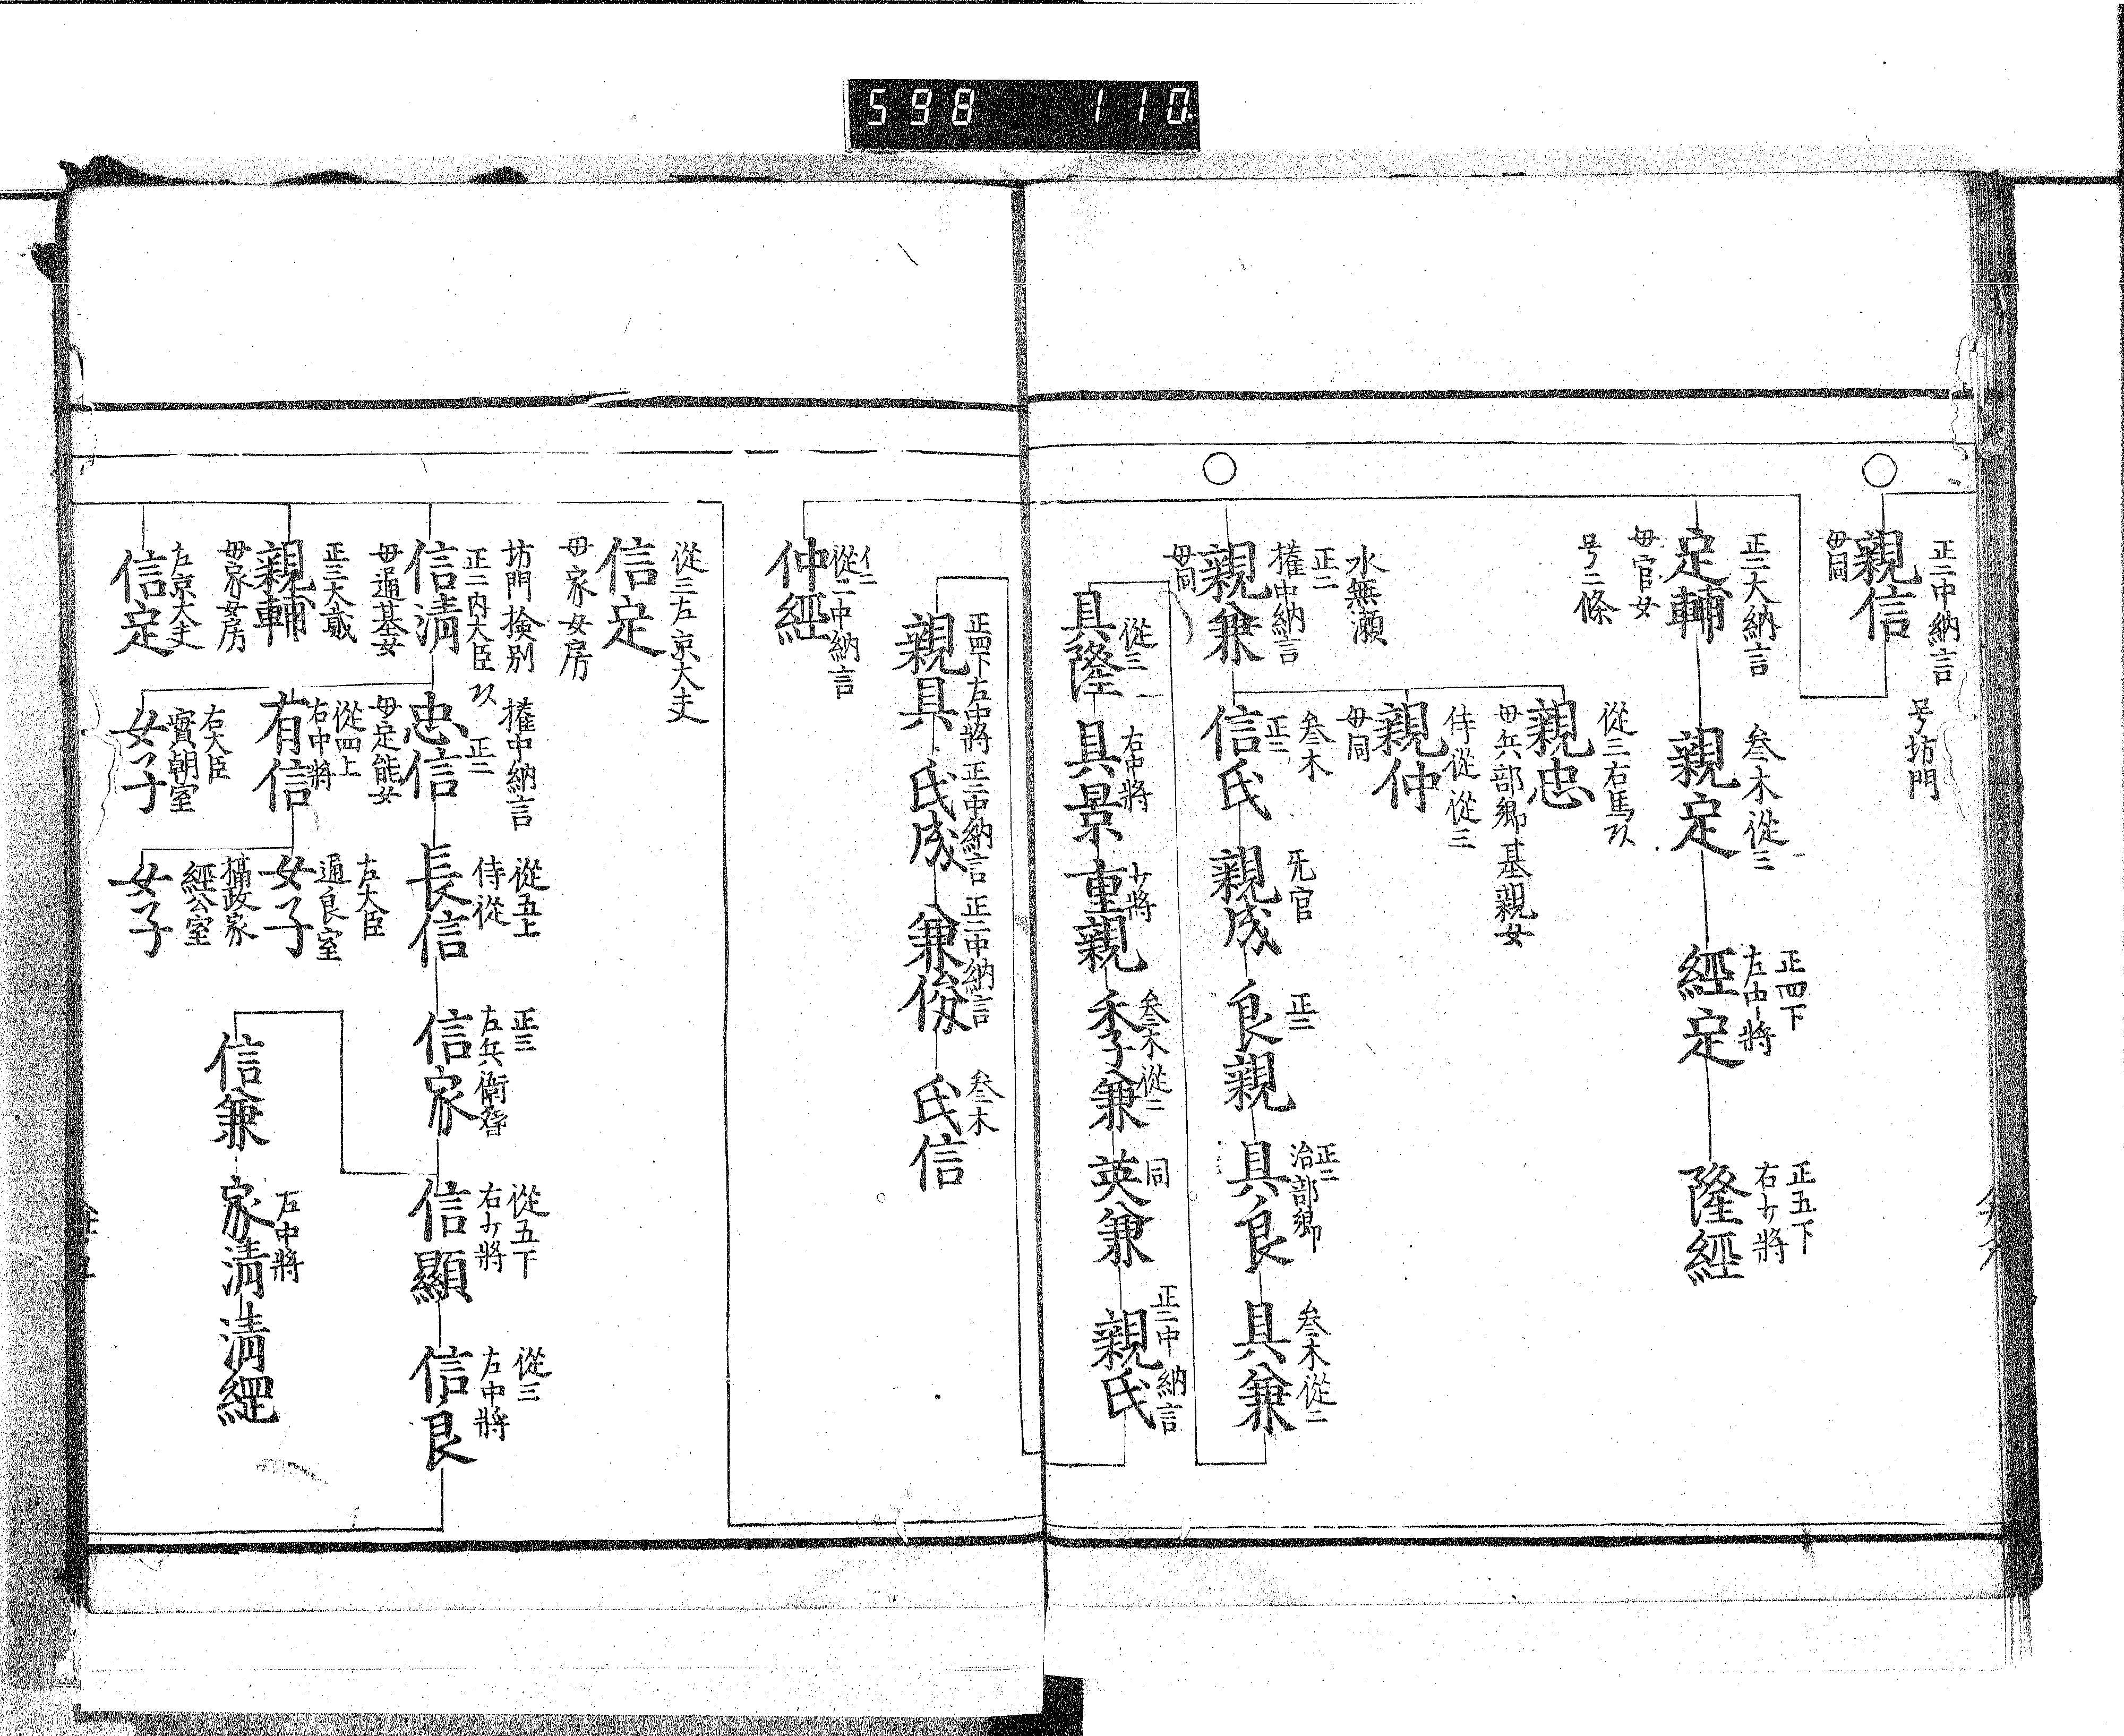 598 110
正二中納言
号坊門
親信
母同
正二大納言
定輔
母官女
号二條
叁木從三
親定
正四下
左中將
經定
正五下
右少將
隆經
水無瀬
正二
權中納言
親兼
母同
從三右馬
親忠
母兵部卿基親女
侍從從三
親仲
母同
叁木
正二
信氏
无官
親成
正二
良親
正二
治部卿
具良
叁木從二
具兼
從三
具隆
右中將
具景
少將
重親
叁木從二
季兼
同
英兼
正二中納言
親氏
正四下左中將
親具
正二中納言
氏成
正二中納言
兼俊
叁木
氏信
從二中納言
仲經
從三左京大夫
信定
母家女房
坊門 挨別
正二内大臣
信淸
母通基女
正三大貳
親輔
母家女房
左京大夫
信定
權中納言
正二
忠信
母定能女
從四上
右中將
有信
右大臣
實朝室
女子
從五上
侍從
長信
左大臣
通良室
女子
攝政家
經公室
女子
正三
左兵衞督
信家
從五下
右少將
信顯
從三
左中將
信良
信兼
左中將
家淸
淸經